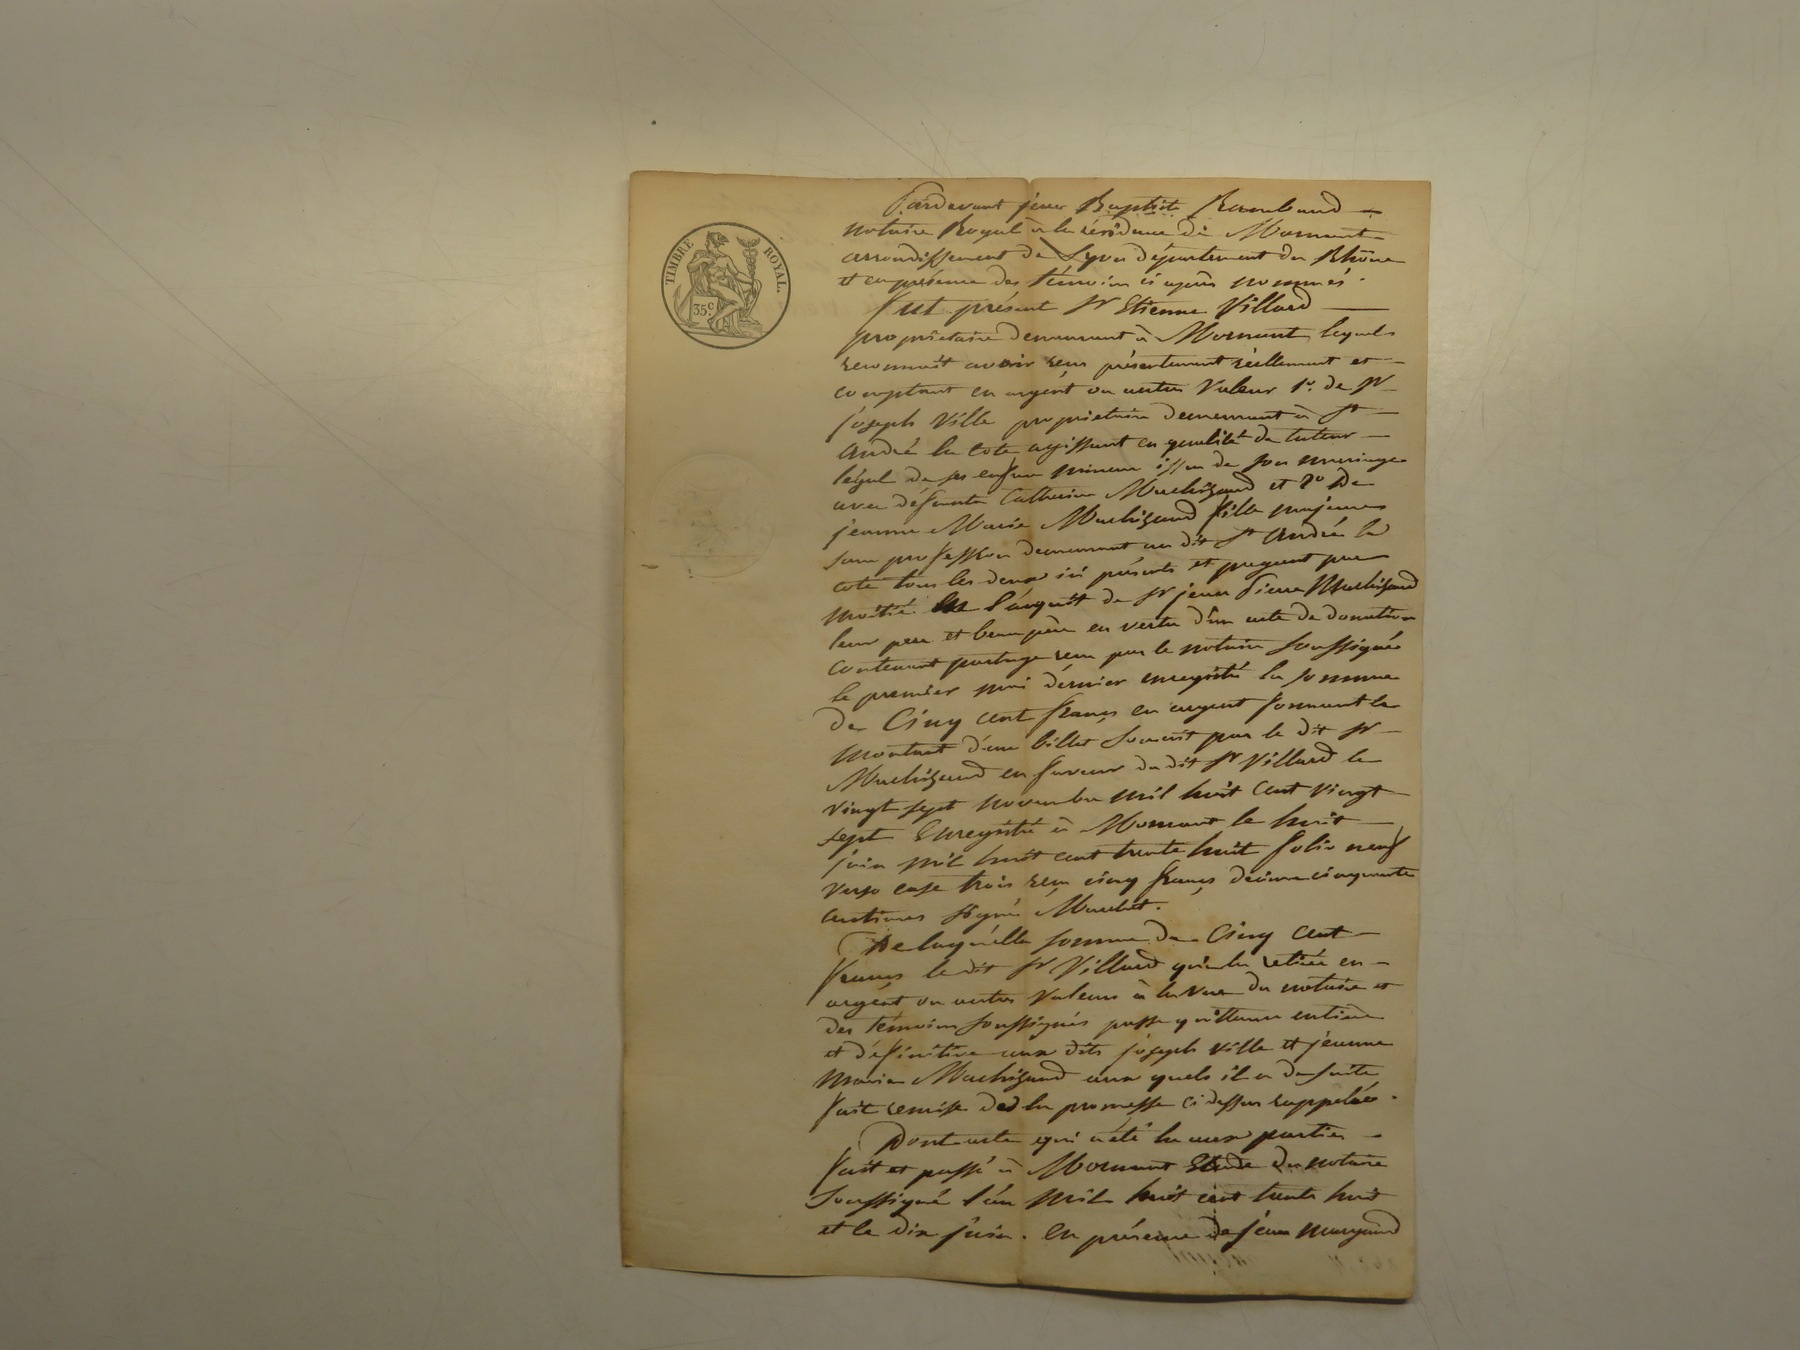 TIMBRE ROYAL.
35 c
Pardevant jean Baptiste Rambaud
notaire Royal à la résidence de Mornant
arrondissement de Lyon département du Rhône
et en présence des témoins ci après nommés.
fut présent Sr Etienne Villard
propriétaire demeurant à Mornant lequel
reconnait avoir reçu présentement réellement et
comptant en argent ou autres valeur 1º. de Sr
joseph Ville propriétaire demeurant à St
André la cote agissant en qualité de tuteur
légal de ses enfans mineurs issu de son mariage
avec défunte Catherine Machizaud et 2º De
jeanne Marie Machizaud fille majeure
sans profession demeurant au dit St André la
cote tous les deux ici présents et payant par
moitié l'acquit de Sr jean Pierre Machizaud
leur pere et beau père en vertu d'un acte de donation
contenant partage reçu par le notaire soussigné
le premier mai dernier enregistré la somme
de Cinq cent francs en argent formant le
montant d'un billet souscrit par le dit Sr
Machizaud en faveur du dit Sr Villard le
vingt sept novembre mil huit cent vingt
sept Enregistré à Mornant le huit
juin mil huit cent trente huit folio neuf
verso case trois reçu cinq francs décime cinquante
centimes signé Mauchet.
De laquelle somme de Cinq cent
francs le dit Sr Villard qui l'a retirée en
argent ou autres valeurs à la vue du notaire et
des témoins soussignés passe quittance entière
et définitive aux dits joseph Ville et jeanne
Marie Machizaud aux quels il a de suite
fait remise de la promesse ci dessus rappelée.
Dont acte qui a été lu aux parties
fait et passé à Mornant Etude du notaire
soussigné l'an mil huit cent trente huit
et le dix juin. en présence de jean